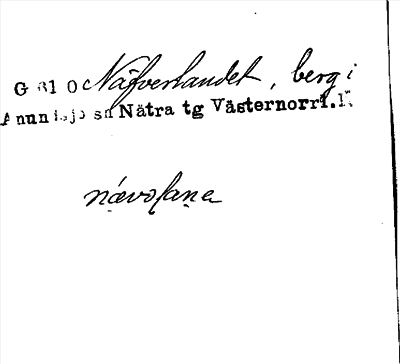 G 81 0 c Näfverlandet, berg i
sn Nätra tg Västernorrl.
nævolane